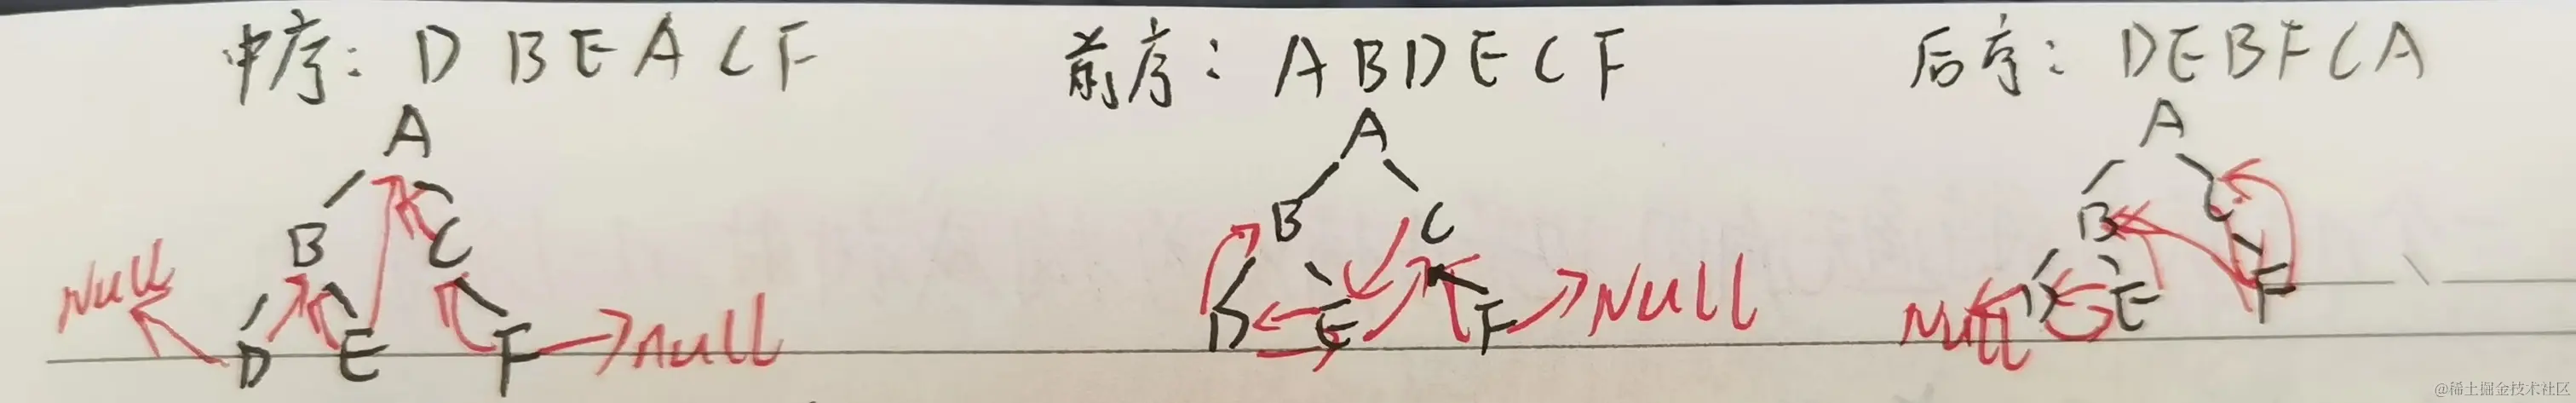 中序: D B E A C F
前序: A B D E C F
后序: D E B F C A
A
B C
D E F
Null null
A
B C
D E F
Null
A
B C
D E F
Null
@稀土掘金技术社区